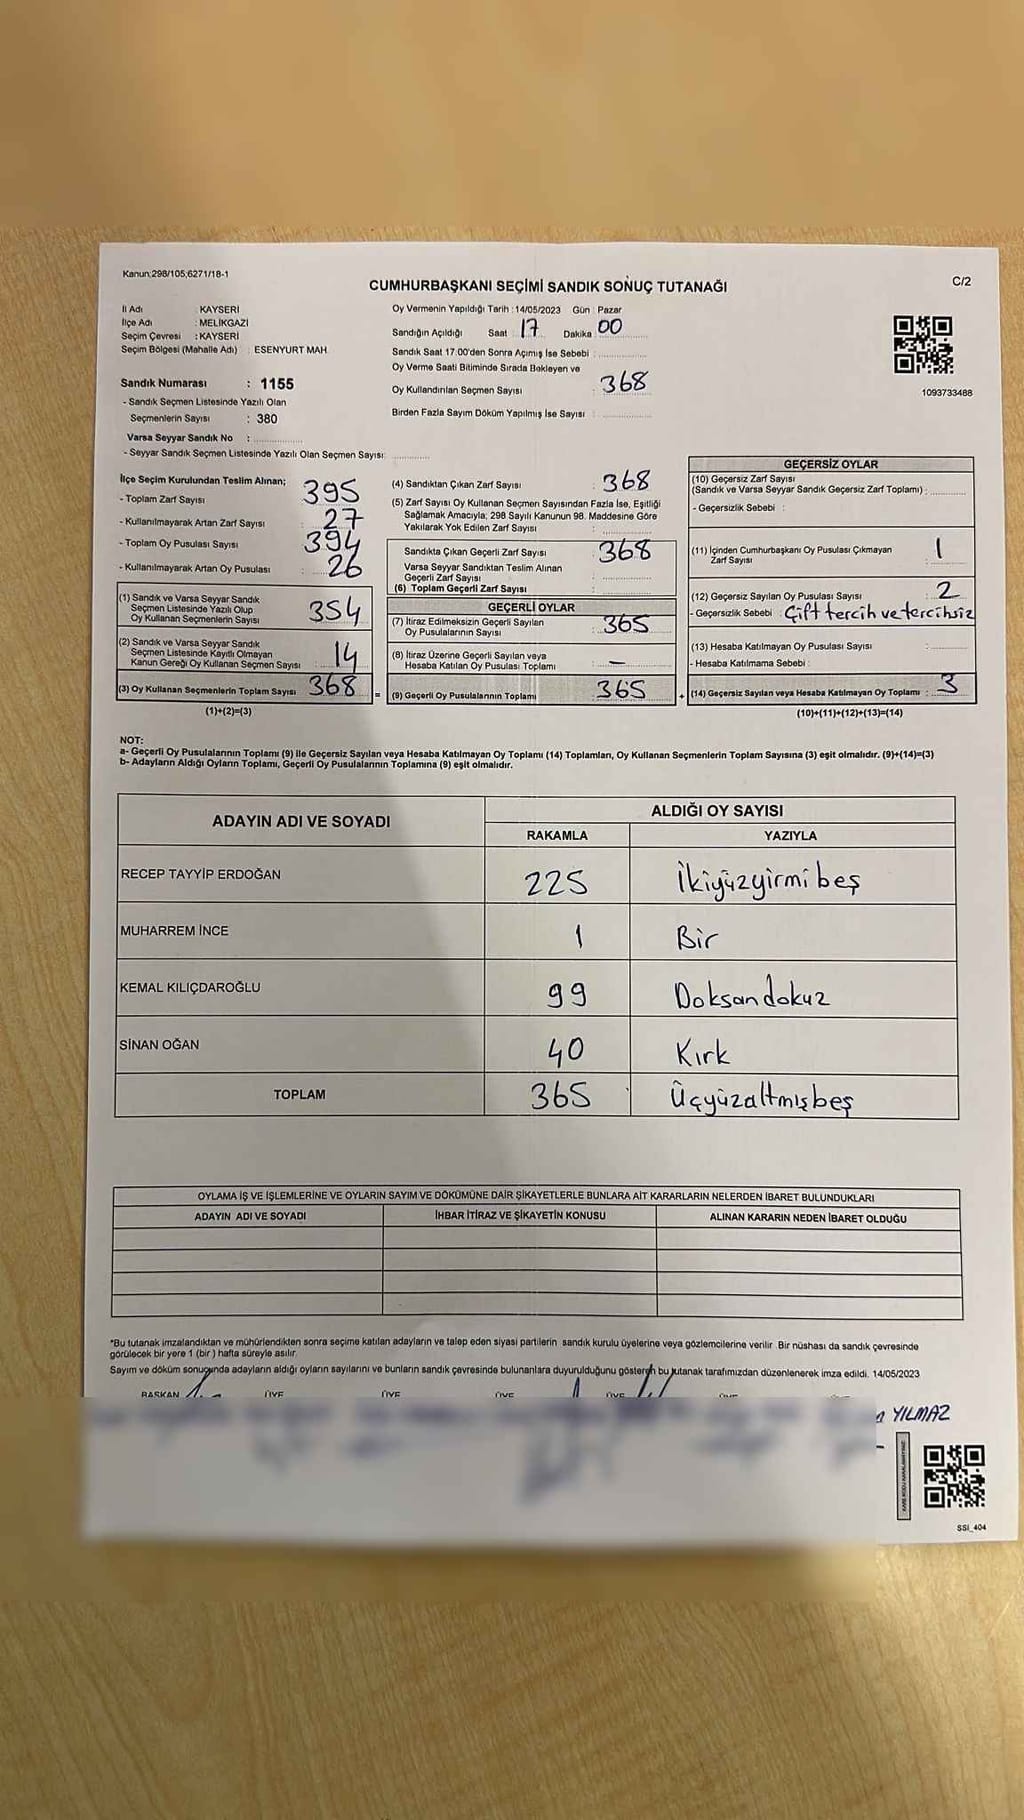 Kanun:298/105;6271/18-1
C/2
CUMHURBAŞKANI SEÇİMİ SANDIK SONUÇ TUTANAĞI
İl Adı : KAYSERİ
İlçe Adı : MELİKGAZİ
Seçim Çevresi : KAYSERİ
Seçim Bölgesi (Mahalle Adı) : ESENYURT MAH.
Sandık Numarası : 1155
- Sandık Seçmen Listesinde Yazılı Olan
Seçmenlerin Sayısı : 380
Varsa Seyyar Sandık No :
- Seyyar Sandık Seçmen Listesinde Yazılı Olan Seçmen Sayısı:
Oy Vermenin Yapıldığı Tarih : 14/05/2023 Gün : Pazar
Sandığın Açıldığı Saat : 17 Dakika : 00
Sandık Saat 17:00'den Sonra Açımış İse Sebebi :
Oy Verme Saati Bitiminde Sırada Bekleyen ve
Oy Kullandırılan Seçmen Sayısı : 368
Birden Fazla Sayım Döküm Yapılmış İse Sayısı :
1093733488
İlçe Seçim Kurulundan Teslim Alınan;
- Toplam Zarf Sayısı : 395
- Kullanılmayarak Artan Zarf Sayısı : 27
- Toplam Oy Pusulası Sayısı : 394
- Kullanılmayarak Artan Oy Pusulası : 26
(1) Sandık ve Varsa Seyyar Sandık
Seçmen Listesinde Yazılı Olup
Oy Kullanan Seçmenlerin Sayısı : 354
(2) Sandık ve Varsa Seyyar Sandık
Seçmen Listesinde Kayıtlı Olmayan
Kanun Gereği Oy Kullanan Seçmen Sayısı : 14
(3) Oy Kullanan Seçmenlerin Toplam Sayısı : 368
(1)+(2)=(3)
(4) Sandıktan Çıkan Zarf Sayısı : 368
(5) Zarf Sayısı Oy Kullanan Seçmen Sayısından Fazla İse, Eşitliği
Sağlamak Amacıyla; 298 Sayılı Kanunun 98. Maddesine Göre
Yakılarak Yok Edilen Zarf Sayısı :
Sandıkta Çıkan Geçerli Zarf Sayısı : 368
Varsa Seyyar Sandıktan Teslim Alınan
Geçerli Zarf Sayısı :
(6) Toplam Geçerli Zarf Sayısı :
GEÇERLİ OYLAR
(7) İtiraz Edilmeksizin Geçerli Sayılan
Oy Pusulalarının Sayısı : 365
(8) İtiraz Üzerine Geçerli Sayılan veya
Hesaba Katılan Oy Pusulası Toplamı : —
= (9) Geçerli Oy Pusulalarının Toplamı : 365
GEÇERSİZ OYLAR
(10) Geçersiz Zarf Sayısı
(Sandık ve Varsa Seyyar Sandık Geçersiz Zarf Toplamı) :
- Geçersizlik Sebebi :
(11) İçinden Cumhurbaşkanı Oy Pusulası Çıkmayan
Zarf Sayısı : 1
(12) Geçersiz Sayılan Oy Pusulası Sayısı : 2
- Geçersizlik Sebebi : Çift tercih ve tercihsiz
(13) Hesaba Katılmayan Oy Pusulası Sayısı :
- Hesaba Katılmama Sebebi :
+ (14) Geçersiz Sayılan veya Hesaba Katılmayan Oy Toplamı : 3
(10)+(11)+(12)+(13)=(14)
NOT:
a- Geçerli Oy Pusulalarının Toplamı (9) ile Geçersiz Sayılan veya Hesaba Katılmayan Oy Toplamı (14) Toplamları, Oy Kullanan Seçmenlerin Toplam Sayısına (3) eşit olmalıdır. (9)+(14)=(3)
b- Adayların Aldığı Oyların Toplamı, Geçerli Oy Pusulalarının Toplamına (9) eşit olmalıdır.
ADAYIN ADI VE SOYADI
ALDIĞI OY SAYISI
RAKAMLA YAZIYLA
RECEP TAYYİP ERDOĞAN 225 İkiyüzyirmibeş
MUHARREM İNCE 1 Bir
KEMAL KILIÇDAROĞLU 99 Doksandokuz
SİNAN OĞAN 40 Kırk
TOPLAM 365 Üçyüzaltmışbeş
OYLAMA İŞ VE İŞLEMLERİNE VE OYLARIN SAYIM VE DÖKÜMÜNE DAİR ŞİKAYETLERLE BUNLARA AİT KARARLARIN NELERDEN İBARET BULUNDUKLARI
ADAYIN ADI VE SOYADI İHBAR İTİRAZ VE ŞİKAYETİN KONUSU ALINAN KARARIN NEDEN İBARET OLDUĞU
*Bu tutanak imzalandıktan ve mühürlendikten sonra seçime katılan adayların ve talep eden siyasi partilerin sandık kurulu üyelerine veya gözlemcilerine verilir. Bir nüshası da sandık çevresinde
görülecek bir yere 1 (bir) hafta süreyle asılır.
Sayım ve döküm sonuçunda adayların aldığı oyların sayılarını ve bunların sandık çevresinde bulunanlara duyurulduğunu gösteren bu tutanak tarafımızdan düzenlenerek imza edildi. 14/05/2023
BAŞKAN ÜYE ÜYE ÜYE ÜYE
YILMAZ
SSI_404